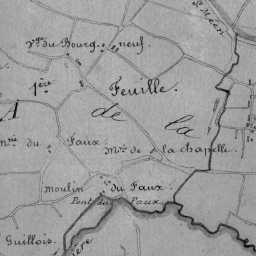 St Méen
Vge du Bourg neuf.
1ère Feuille.
A de la
Mnie du Faux
Mon de la chapelle.
moulin du Faux.
Pont du Faux
Guillois.